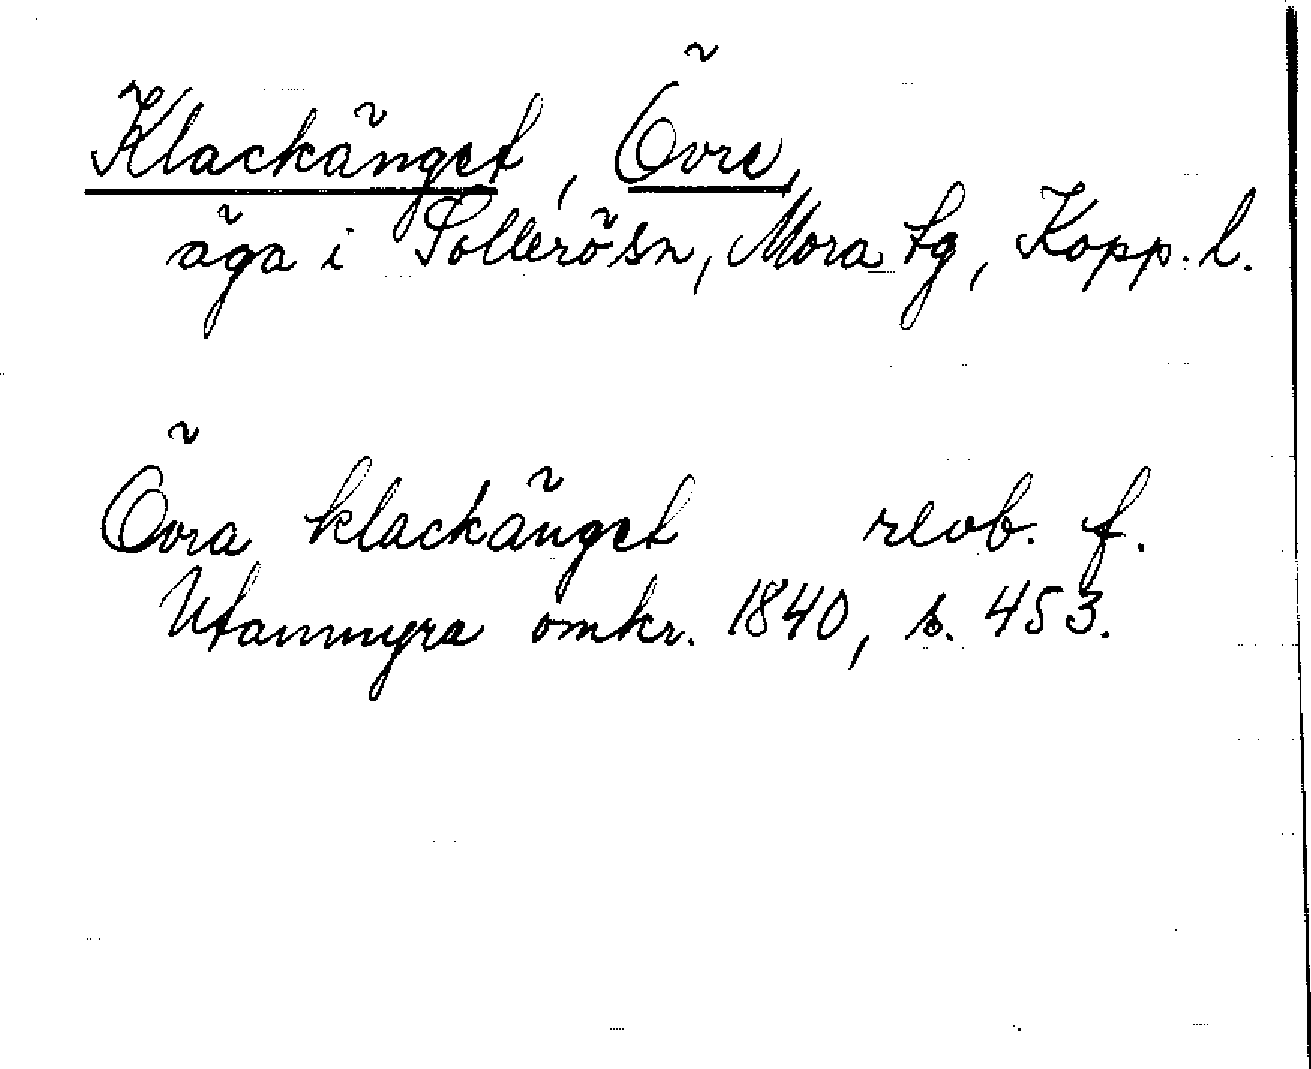 Klackänget, Övre,
äga i Sollerö sn, Mora tg, Kopp. l.
Övra klackänget revb. f.
Utanmyra omkr. 1840, s. 453.